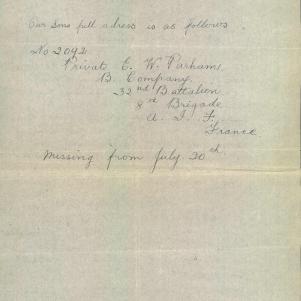 Our Sons full adress is as follows.
No 2092
Private E. W. Parham,
B. Company.
32nd Battalion
8rd Brigade
A. I. F.
France
Missing from July 20th.